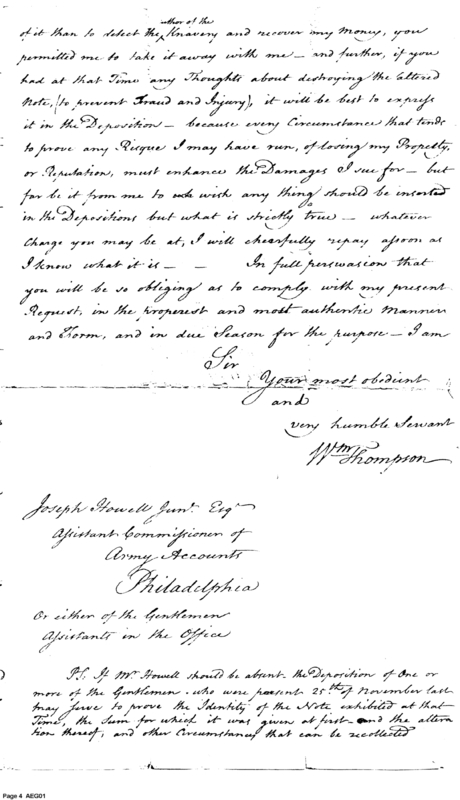 of it than to detect the Author of the Knavery and recover my Money, you
permitted me to take it away with me – and further, if you
had at that Time any Thoughts about destroying the altered
Note, (to prevent Fraud and Injury), it will be best to express
it in the Deposition – because every Circumstance that tends
to prove any Risque I may have run, of losing my Property,
or Reputation, must enhance the Damages I sue for – but
far be it from me to wish any thing should be inserted
in the Depositions but what is strictly true – whatever
Charge you may be at, I will chearfully repay assoon as
I know what it is – – In full perswasion that
you will be so obliging as to comply with my present
Request, in the properest and most authentic Manner
and Form, and in due Season for the purpose – I am
Sir
Your most obedient
and
very humble Servant
Wm Thompson
Joseph Howell Junr. Esqr
Assistant Commissioner of
Army Accounts
Philadelphia
Or either of the Gentlemen
Assistants in the Office
P.S. If Mr. Howell should be absent the Deposition of One or
more of the Gentlemen who were present 25th of November last
may serve to prove the Identity of the Note exhibited at that
Time, the Sum for which it was given at first and the altera
tion thereof, and other Circumstances that can be recollected
Page 4 AEG01